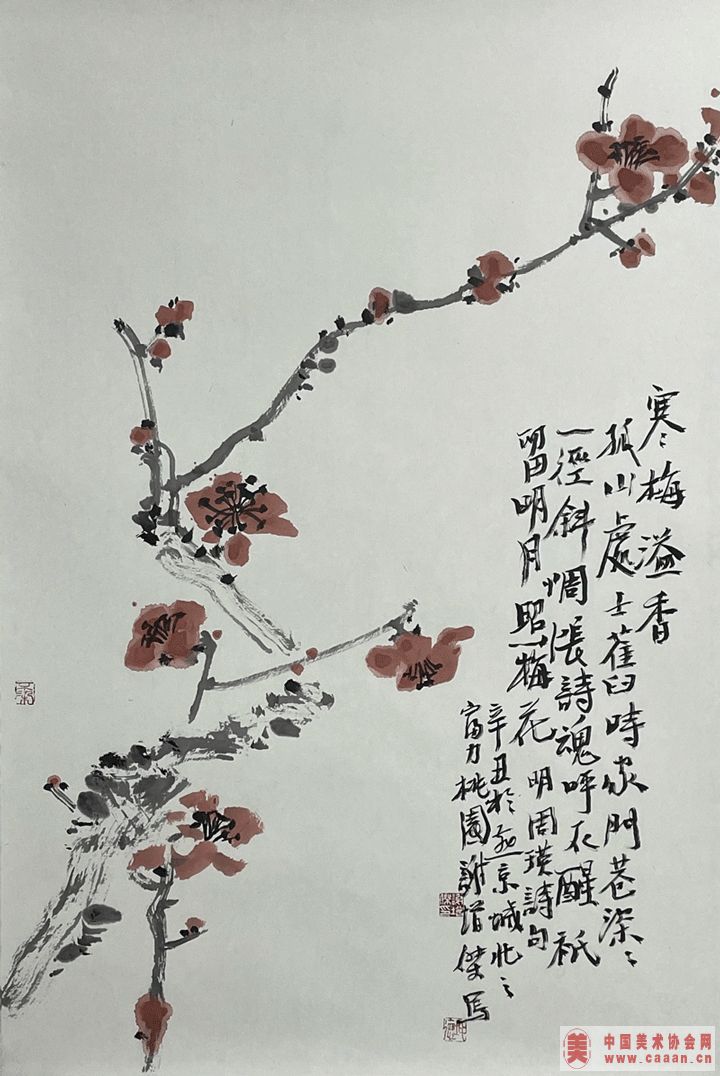 寒〻梅溢香
孤山處士舊時家門巷深〻
一徑斜惆悵詩魂呼不醒祇
留明月照梅花 明周瑛詩句
辛丑於燕京城北之
富力桃園謝增傑寫
美 中国美术协会网
www.caaan.cn